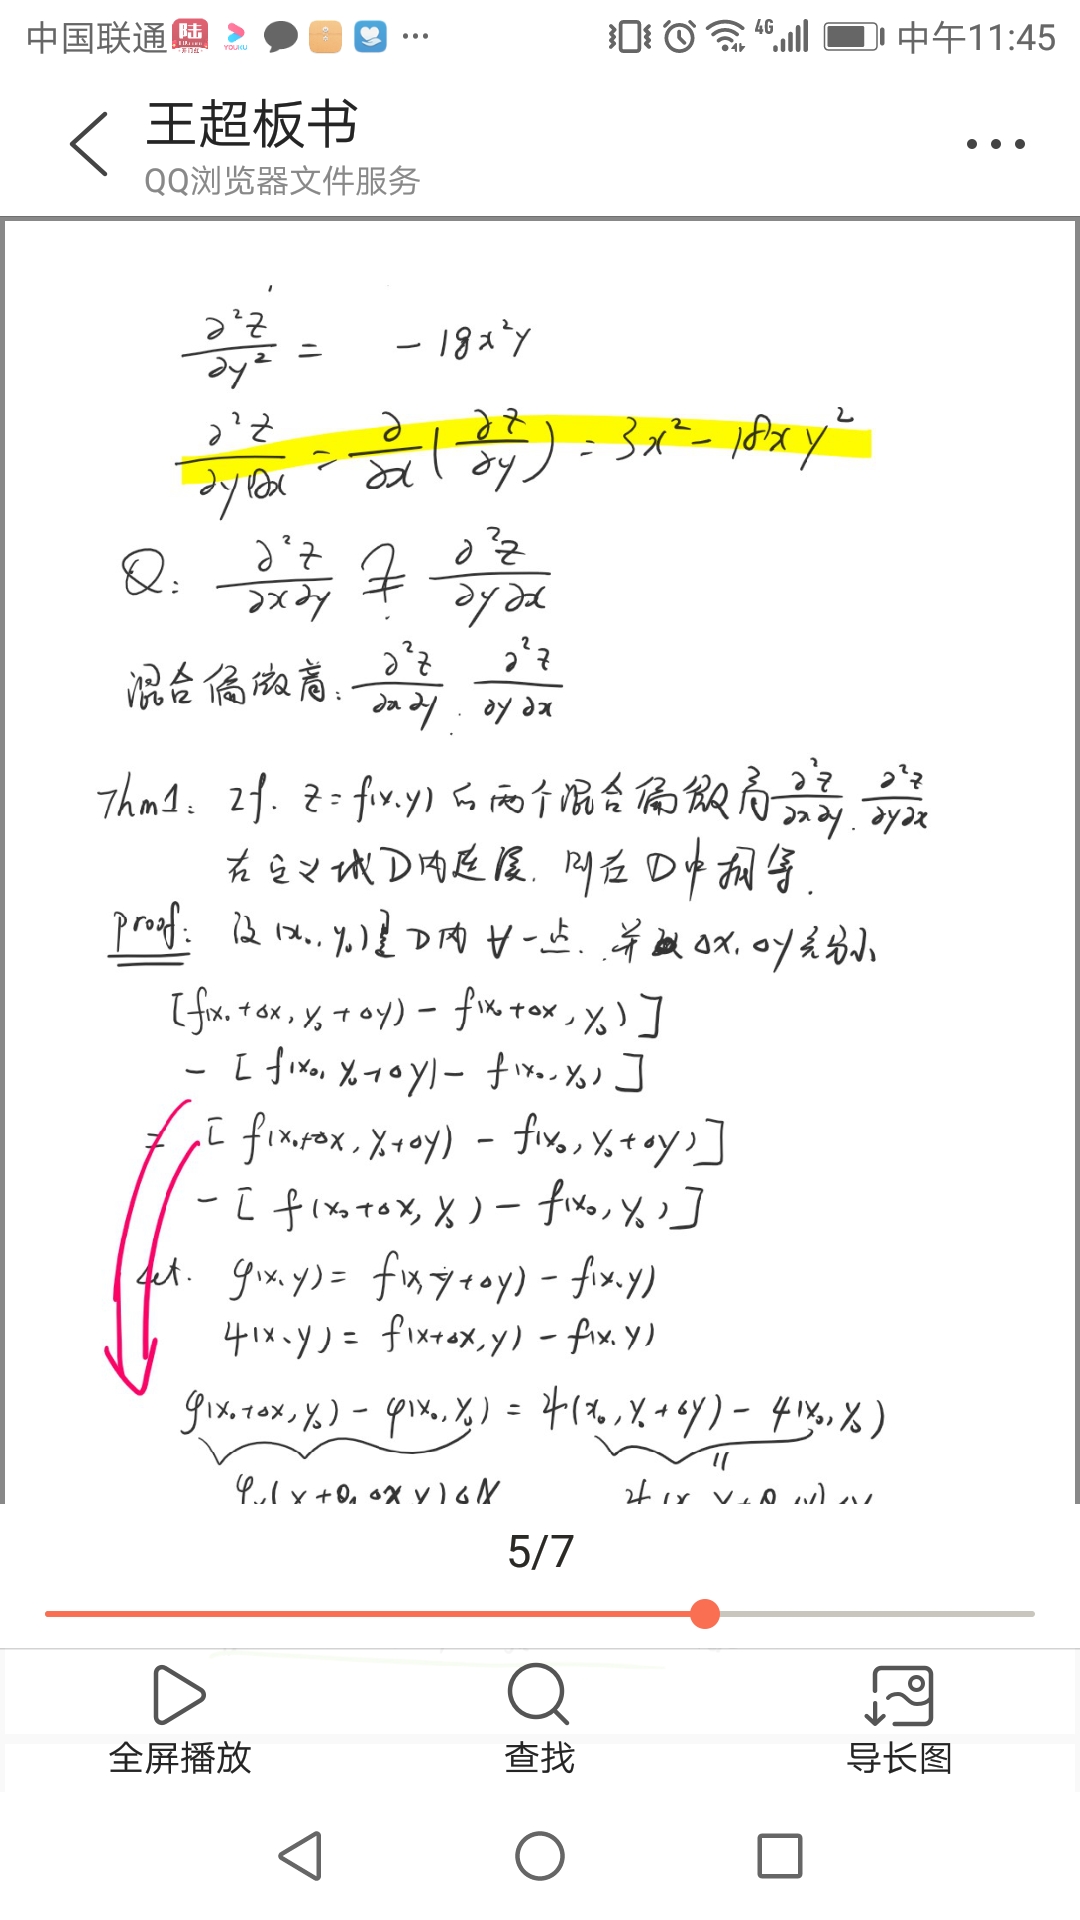 中国联通 陆 YOUKU ... 4G 中午11:45
王超板书
QQ浏览器文件服务
∂²z/∂y² = - 18x²y
∂²z/∂y∂x = ∂/∂x (∂z/∂y) = 3x² - 18xy²
Q: ∂²z/∂x∂y ≟ ∂²z/∂y∂x
混合偏微商: ∂²z/∂x∂y . ∂²z/∂y∂x
Thm1: If. z = f(x.y) 的两个混合偏微商 ∂²z/∂x∂y . ∂²z/∂y∂x
在定义域D内连续. 则在D中相等.
proof: 设(x₀, y₀)是D内∀一点. 并取Δx, Δy充分小
[f(x₀+Δx, y₀+Δy) - f(x₀+Δx, y₀)]
- [f(x₀, y₀+Δy) - f(x₀, y₀)]
= [f(x₀+Δx, y₀+Δy) - f(x₀, y₀+Δy)]
- [f(x₀+Δx, y₀) - f(x₀, y₀)]
Let. φ(x, y) = f(x, y+Δy) - f(x.y)
ψ(x, y) = f(x+Δx, y) - f(x.y)
φ(x₀+Δx, y₀) - φ(x₀, y₀) = ψ(x₀, y₀+Δy) - ψ(x₀, y₀)
5/7
全屏播放 查找 导长图